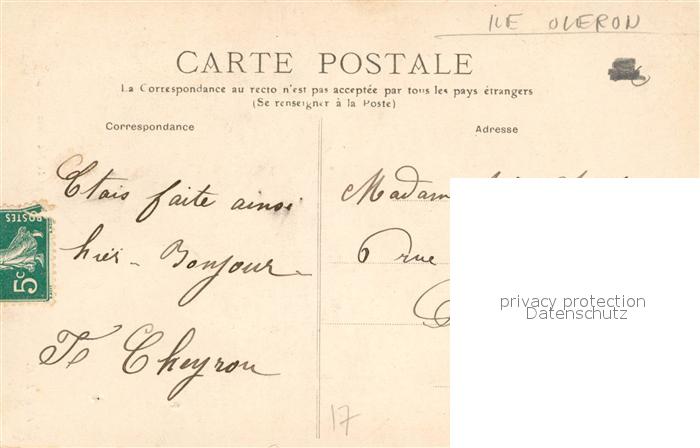 ILE OLERON
CARTE POSTALE
La Correspondance au recto n'est pas acceptée par tous les pays étrangers
(Se renseigner à la Poste)
Correspondance
Adresse
Etais faite ainsi
hier - Bonjour -
Cheyrou
Madame
6 rue
POSTES
5c
17
privacy protection
Datenschutz